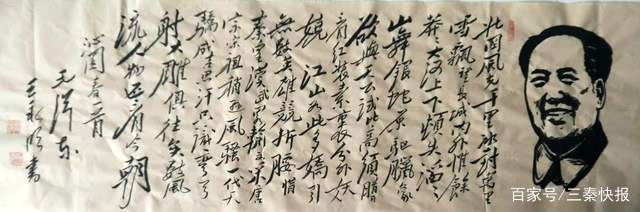 北国风光千里冰封万里
雪飘望长城内外惟餘
莽莽大河上下顿失滔滔
山舞银蛇原驰臘象
欲與天公試比高須晴日
看红装素裹分外妖
娆江山如此多嬌引
無數英雄競折腰惜
秦皇漢武略輸文采唐
宗宋祖稍逊風騷一代天
驕成吉思汗只識彎弓
射大雕俱往矣數風
流人物还看今朝
沁園春一首
毛澤东
書
百家号/三秦快报